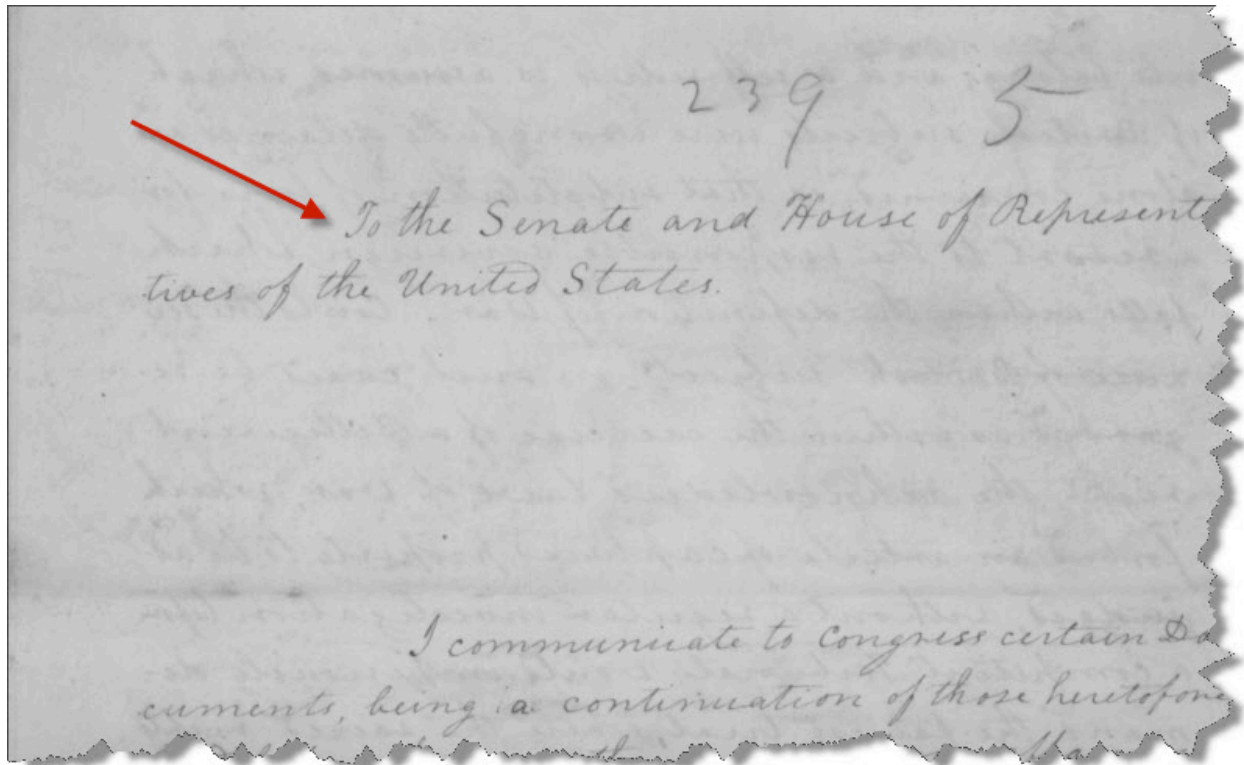 239 5
To the Senate and House of Represent
tives of the United States.
I communicate to Congress certain Do
cuments, being a continuation of those heretofore